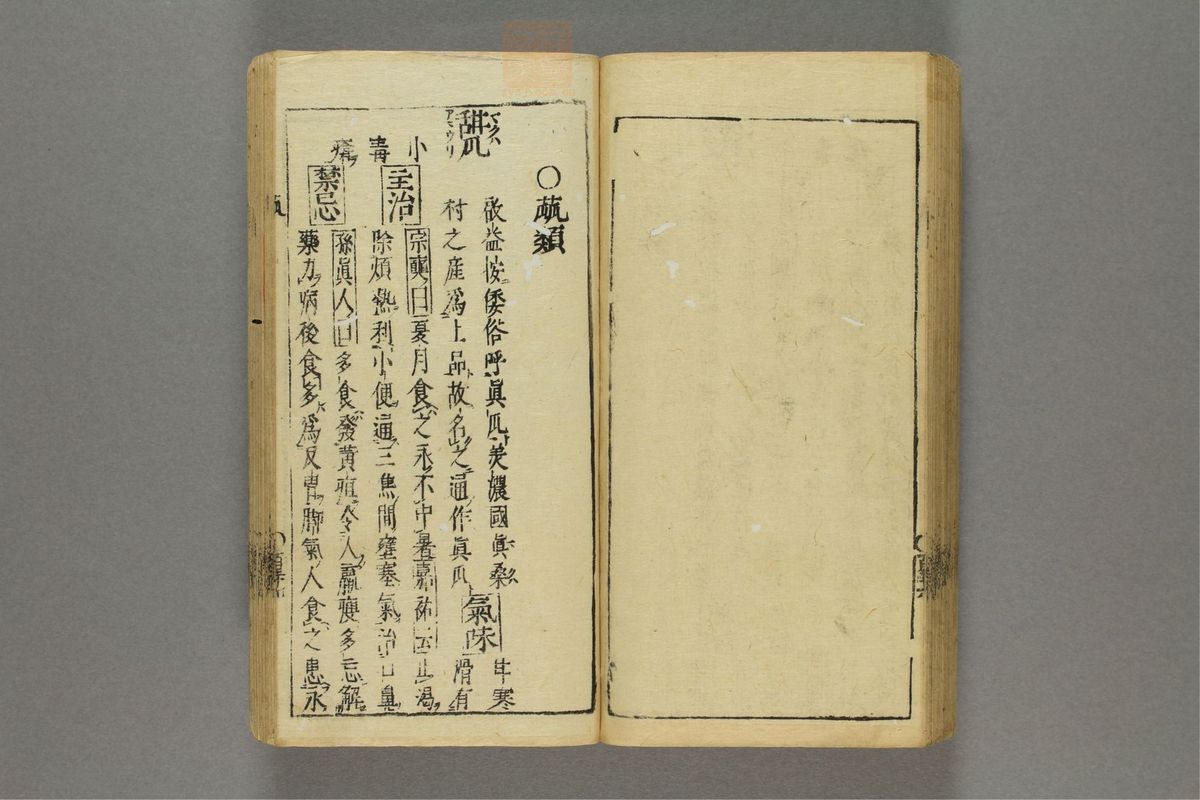 ○蓏類
甜瓜
アマウリ
啓益按倭俗呼眞瓜美濃國眞桑
村之産爲上品故名之通作眞瓜
氣味
甘寒
滑有
小毒
主治
宗奭曰夏月食之永不中暑嘉祐云止渴
除煩熱利小便通三焦間壅塞氣治口鼻
瘡
禁忌
孫眞人曰多食發黄疸令人羸瘦多忘解
藥力病後食多爲反胃脚氣人食之患永